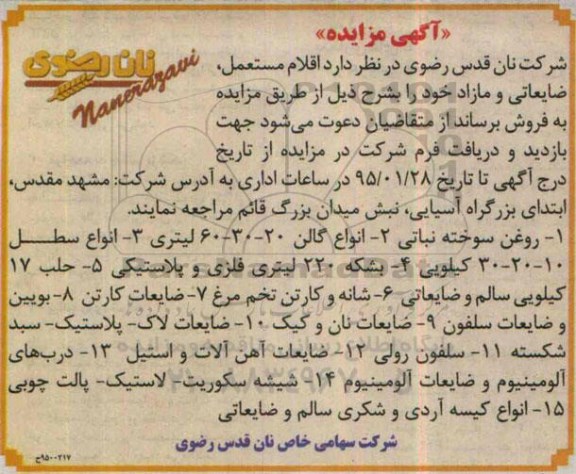 «آگهی مزایده»
نان رضوی
Nanerazavi
شرکت نان قدس رضوی در نظر دارد اقلام مستعمل،
ضایعاتی و مازاد خود را بشرح ذیل از طریق مزایده
به فروش برساند از متقاضیان دعوت می‌شود جهت
بازدید و دریافت فرم شرکت در مزایده از تاریخ
درج آگهی تا تاریخ ۹۵/۰۱/۲۸ در ساعات اداری به آدرس شرکت: مشهد مقدس،
ابتدای بزرگراه آسیایی، نبش میدان بزرگ قائم مراجعه نمایند.
۱- روغن سوخته نباتی ۲- انواع گالن ۲۰-۳۰-۶۰ لیتری ۳- انواع سطل
۱۰-۲۰-۳۰ کیلویی ۴- بشکه ۲۲۰ لیتری فلزی و پلاستیکی ۵- حلب ۱۷
کیلویی سالم و ضایعاتی ۶- شانه و کارتن تخم مرغ ۷- ضایعات کارتن ۸- بوبین
و ضایعات سلفون ۹- ضایعات نان و کیک ۱۰- ضایعات لاک- پلاستیک- سبد
شکسته ۱۱- سلفون رولی ۱۲- ضایعات آهن آلات و استیل ۱۳- درب‌های
آلومینیوم و ضایعات آلومینیوم ۱۴- شیشه سکوریت- لاستیک- پالت چوبی
۱۵- انواع کیسه آردی و شکری سالم و ضایعاتی
شرکت سهامی خاص نان قدس رضوی
۹۵۰۰۲۱۷ح